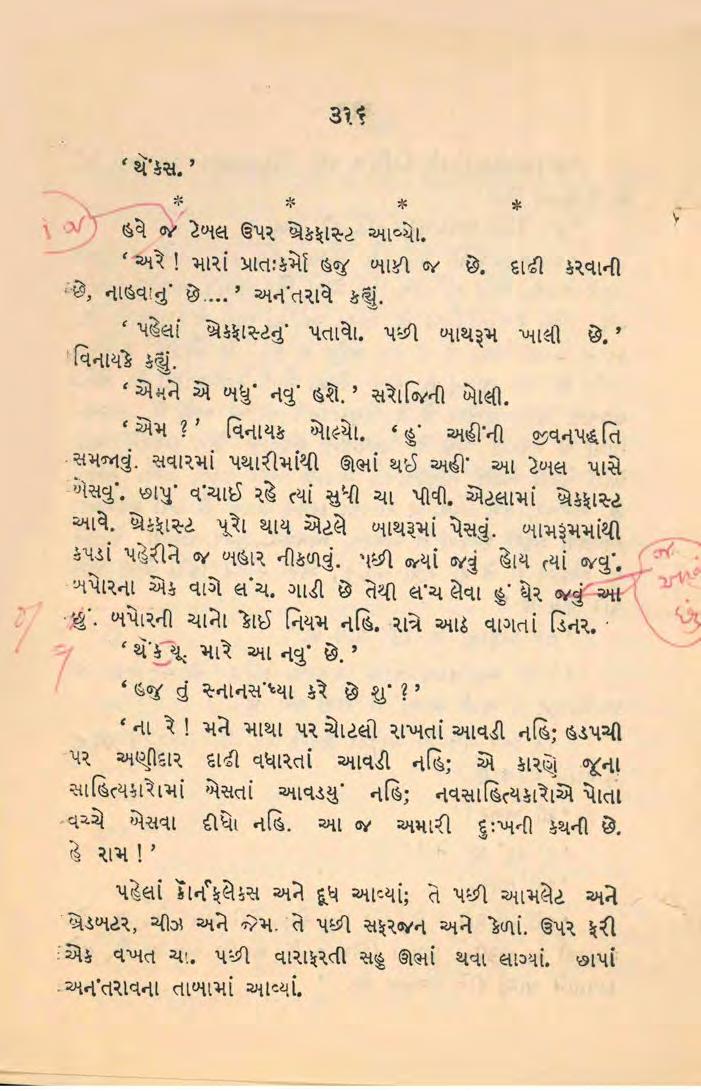 ૩૧૬
‘ થેંક્સ. ’
* * * *
હવે જ ટેબલ ઉપર બ્રેકફાસ્ટ આવ્યો.
‘ અરે ! મારાં પ્રાતઃકર્મો હજુ બાકી જ છે. દાઢી કરવાની
છે, નાહવાનું છે.... ’ અનંતરાવે કહ્યું.
‘ પહેલાં બ્રેકફાસ્ટનું પતાવો. પછી બાથરૂમ ખાલી છે. ’
વિનાયકે કહ્યું.
‘ એમને એ બધું નવું હશે. ’ સરોજિની બોલી.
‘ એમ ? ’ વિનાયક બોલ્યો. ‘ હું અહીંની જીવનપદ્ધતિ
સમજાવું. સવારમાં પથારીમાંથી ઊભાં થઈ અહીં આ ટેબલ પાસે
બેસવું. છાપું વંચાઈ રહે ત્યાં સુધી ચા પીવી. એટલામાં બ્રેકફાસ્ટ
આવે. બ્રેકફાસ્ટ પૂરો થાય એટલે બાથરૂમાં પેસવું. બામરૂમમાંથી
કપડાં પહેરીને જ બહાર નીકળવું. પછી જ્યાં જવું હોય ત્યાં જવું.
બપોરના એક વાગે લંચ. ગાડી છે તેથી લંચ લેવા હું ઘેર જવું આ
છું. બપોરની ચાનો કોઈ નિયમ નહિ. રાત્રે આઠ વાગતાં ડિનર.
‘ થેંક યૂ. મારે આ નવું છે. ’
‘ હજુ તું સ્નાનસંધ્યા કરે છે શું ? ’
‘ ના રે ! મને માથા પર ચોટલી રાખતાં આવડી નહિ; હડપચી
પર અણીદાર દાઢી વધારતાં આવડી નહિ; એ કારણે જૂના
સાહિત્યકારોમાં બેસતાં આવડયું નહિ; નવસાહિત્યકારોએ પોતા
વચ્ચે બેસવા દીધો નહિ. આ જ અમારી દુઃખની કથની છે.
હે રામ ! ’
પહેલાં કૉર્નફ્લેક્સ અને દૂધ આવ્યાં; તે પછી આમલેટ અને
બ્રેડબટર, ચીઝ અને જેમ. તે પછી સફરજન અને કેળાં. ઉપર ફરી
એક વખત ચા. પછી વારાફરતી સહુ ઊભાં થવા લાગ્યાં. છાપાં
અનંતરાવના તાબામાં આવ્યાં.